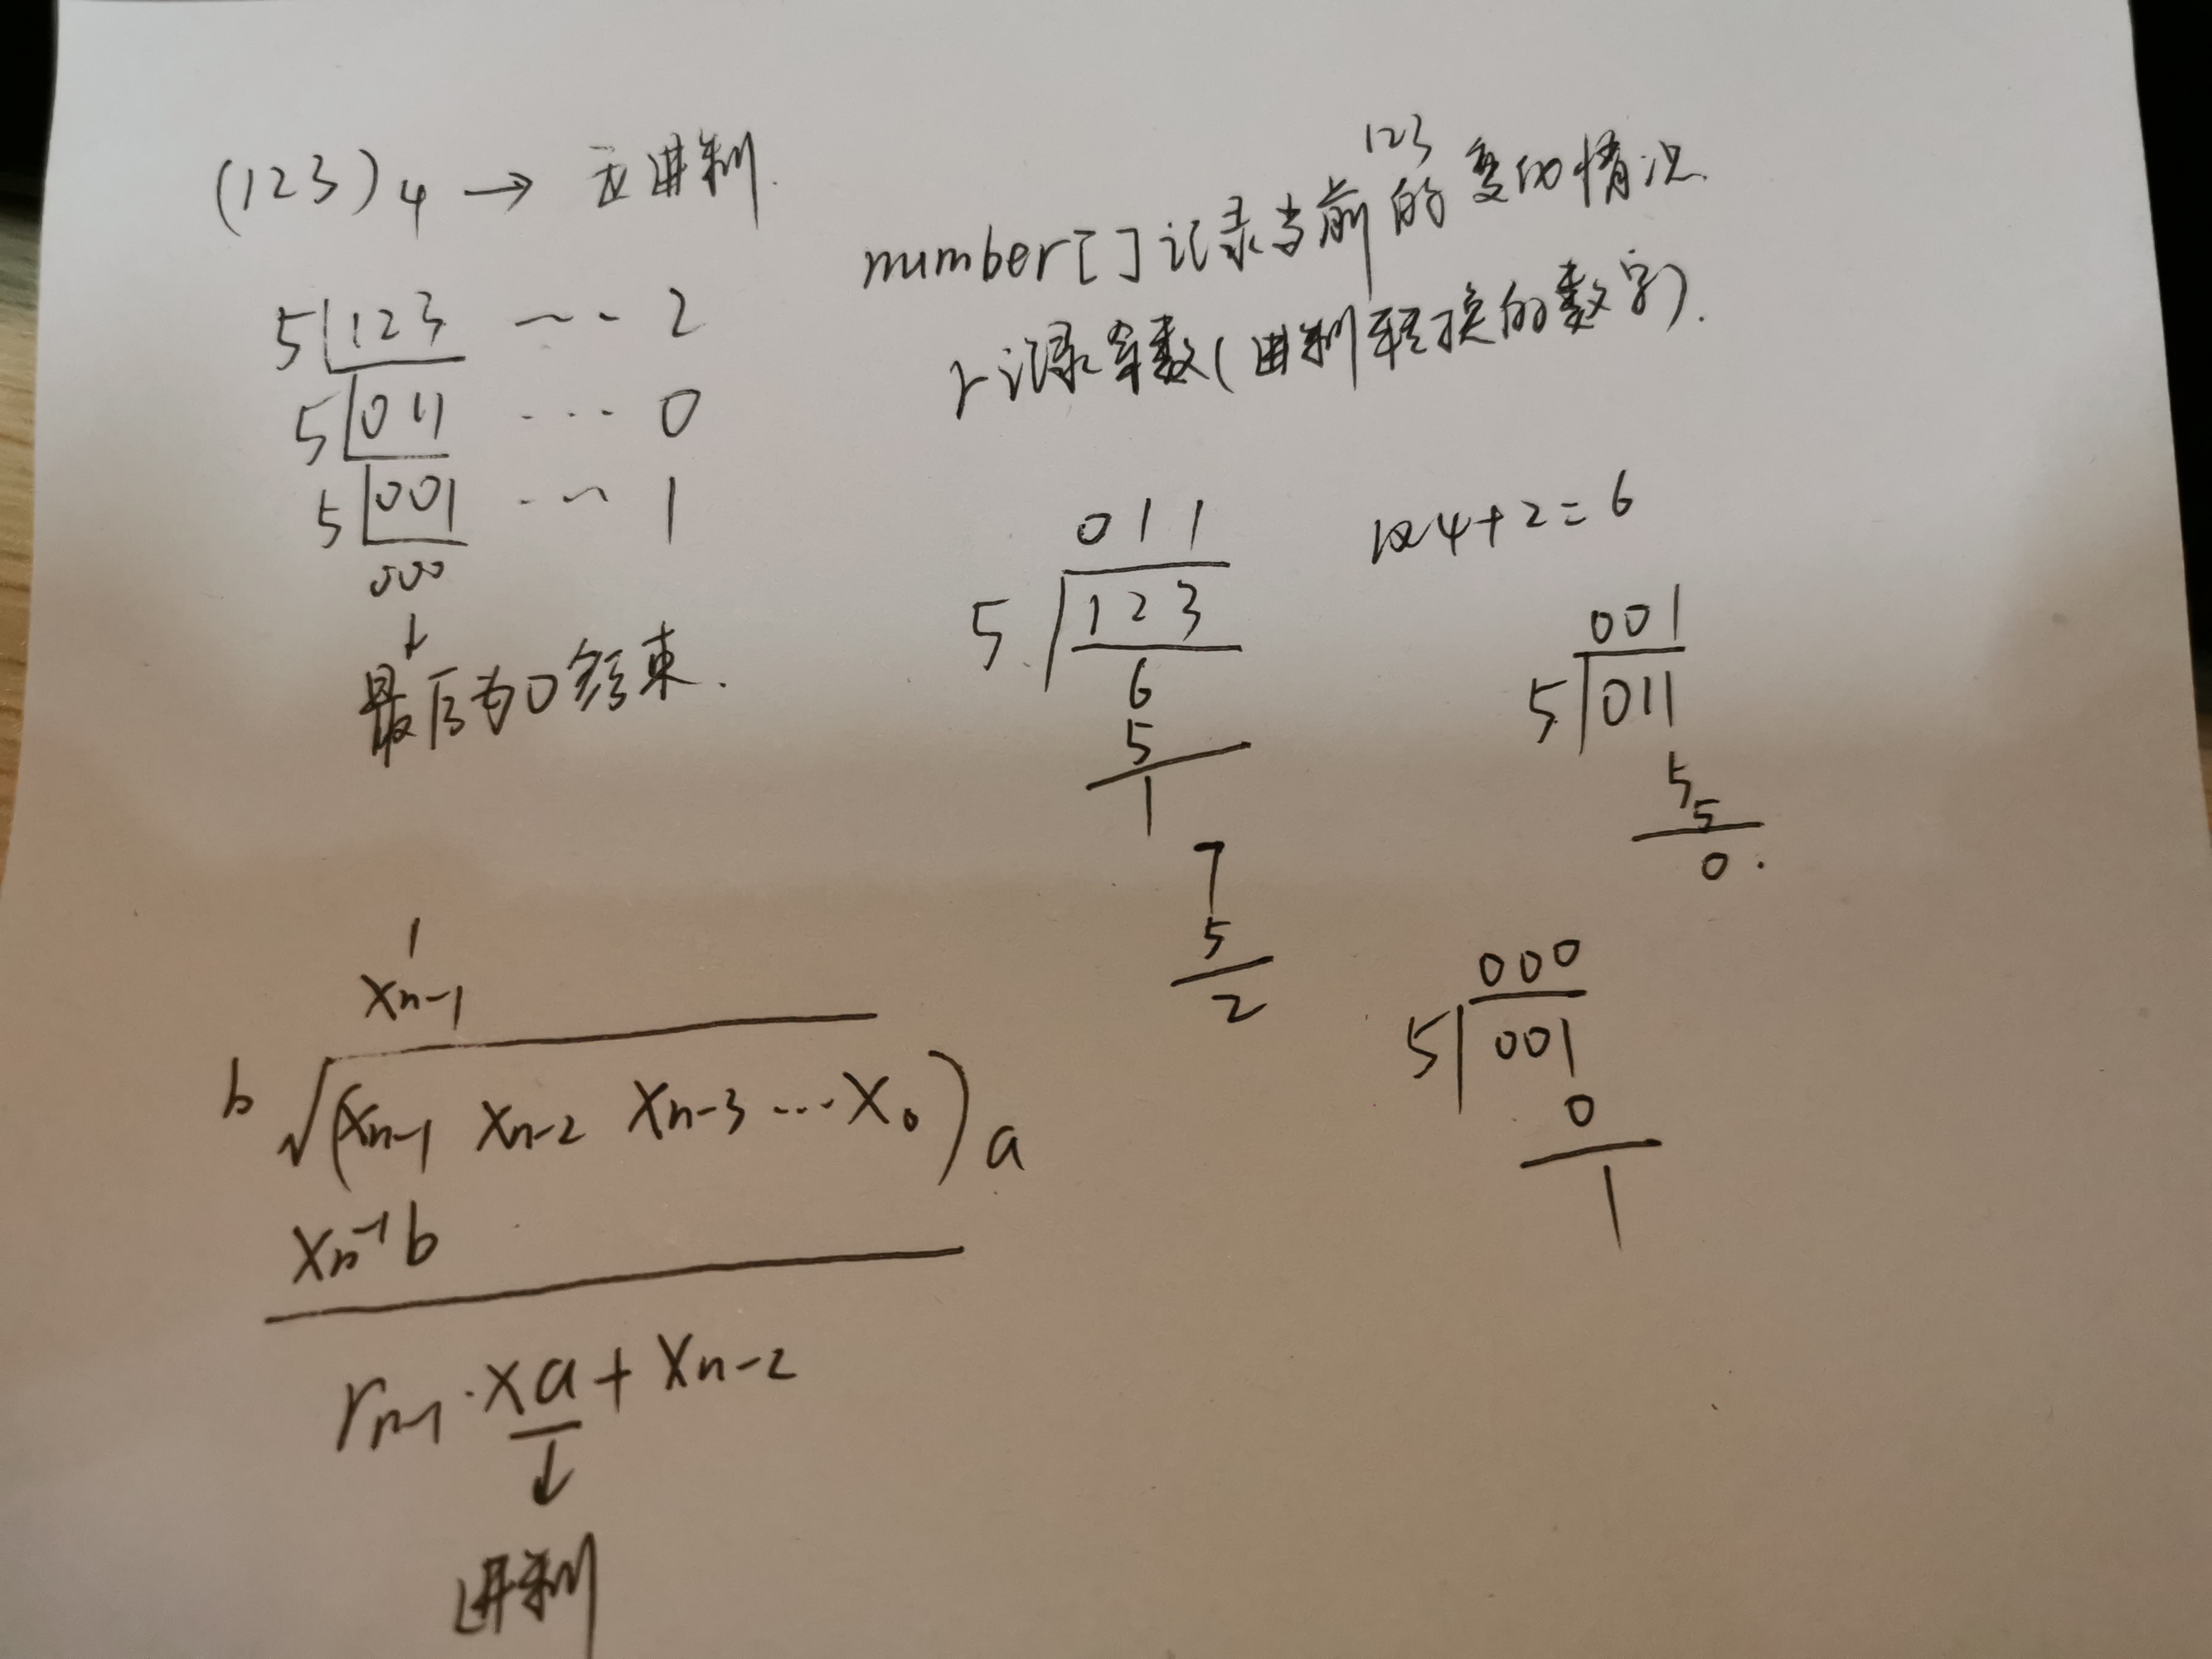 (123)4 → 五进制.
5 123 ---- 2
5 011 ---- 0
5 001 ---- 1
000
↓
最后为0结束.
123
number[]记录当前的变动情况.
r记录余数(进制转换的数字).
011
5 123
6
5
1
7
5
2
1×4+2=6
001
5 011
5
5
0.
000
5 001
0
1
x'n-1
b √(xn-1 xn-2 xn-3 ... x0)a
x'n-1b
rn-1·xa+xn-2
↓
进制